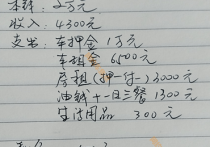 本钱：2万元
收入：4300元
支出：车押金 1万元
车租金 6500元
房租(押一付一) 3000元
油钱+一日三餐 1300元
生活用品 300元